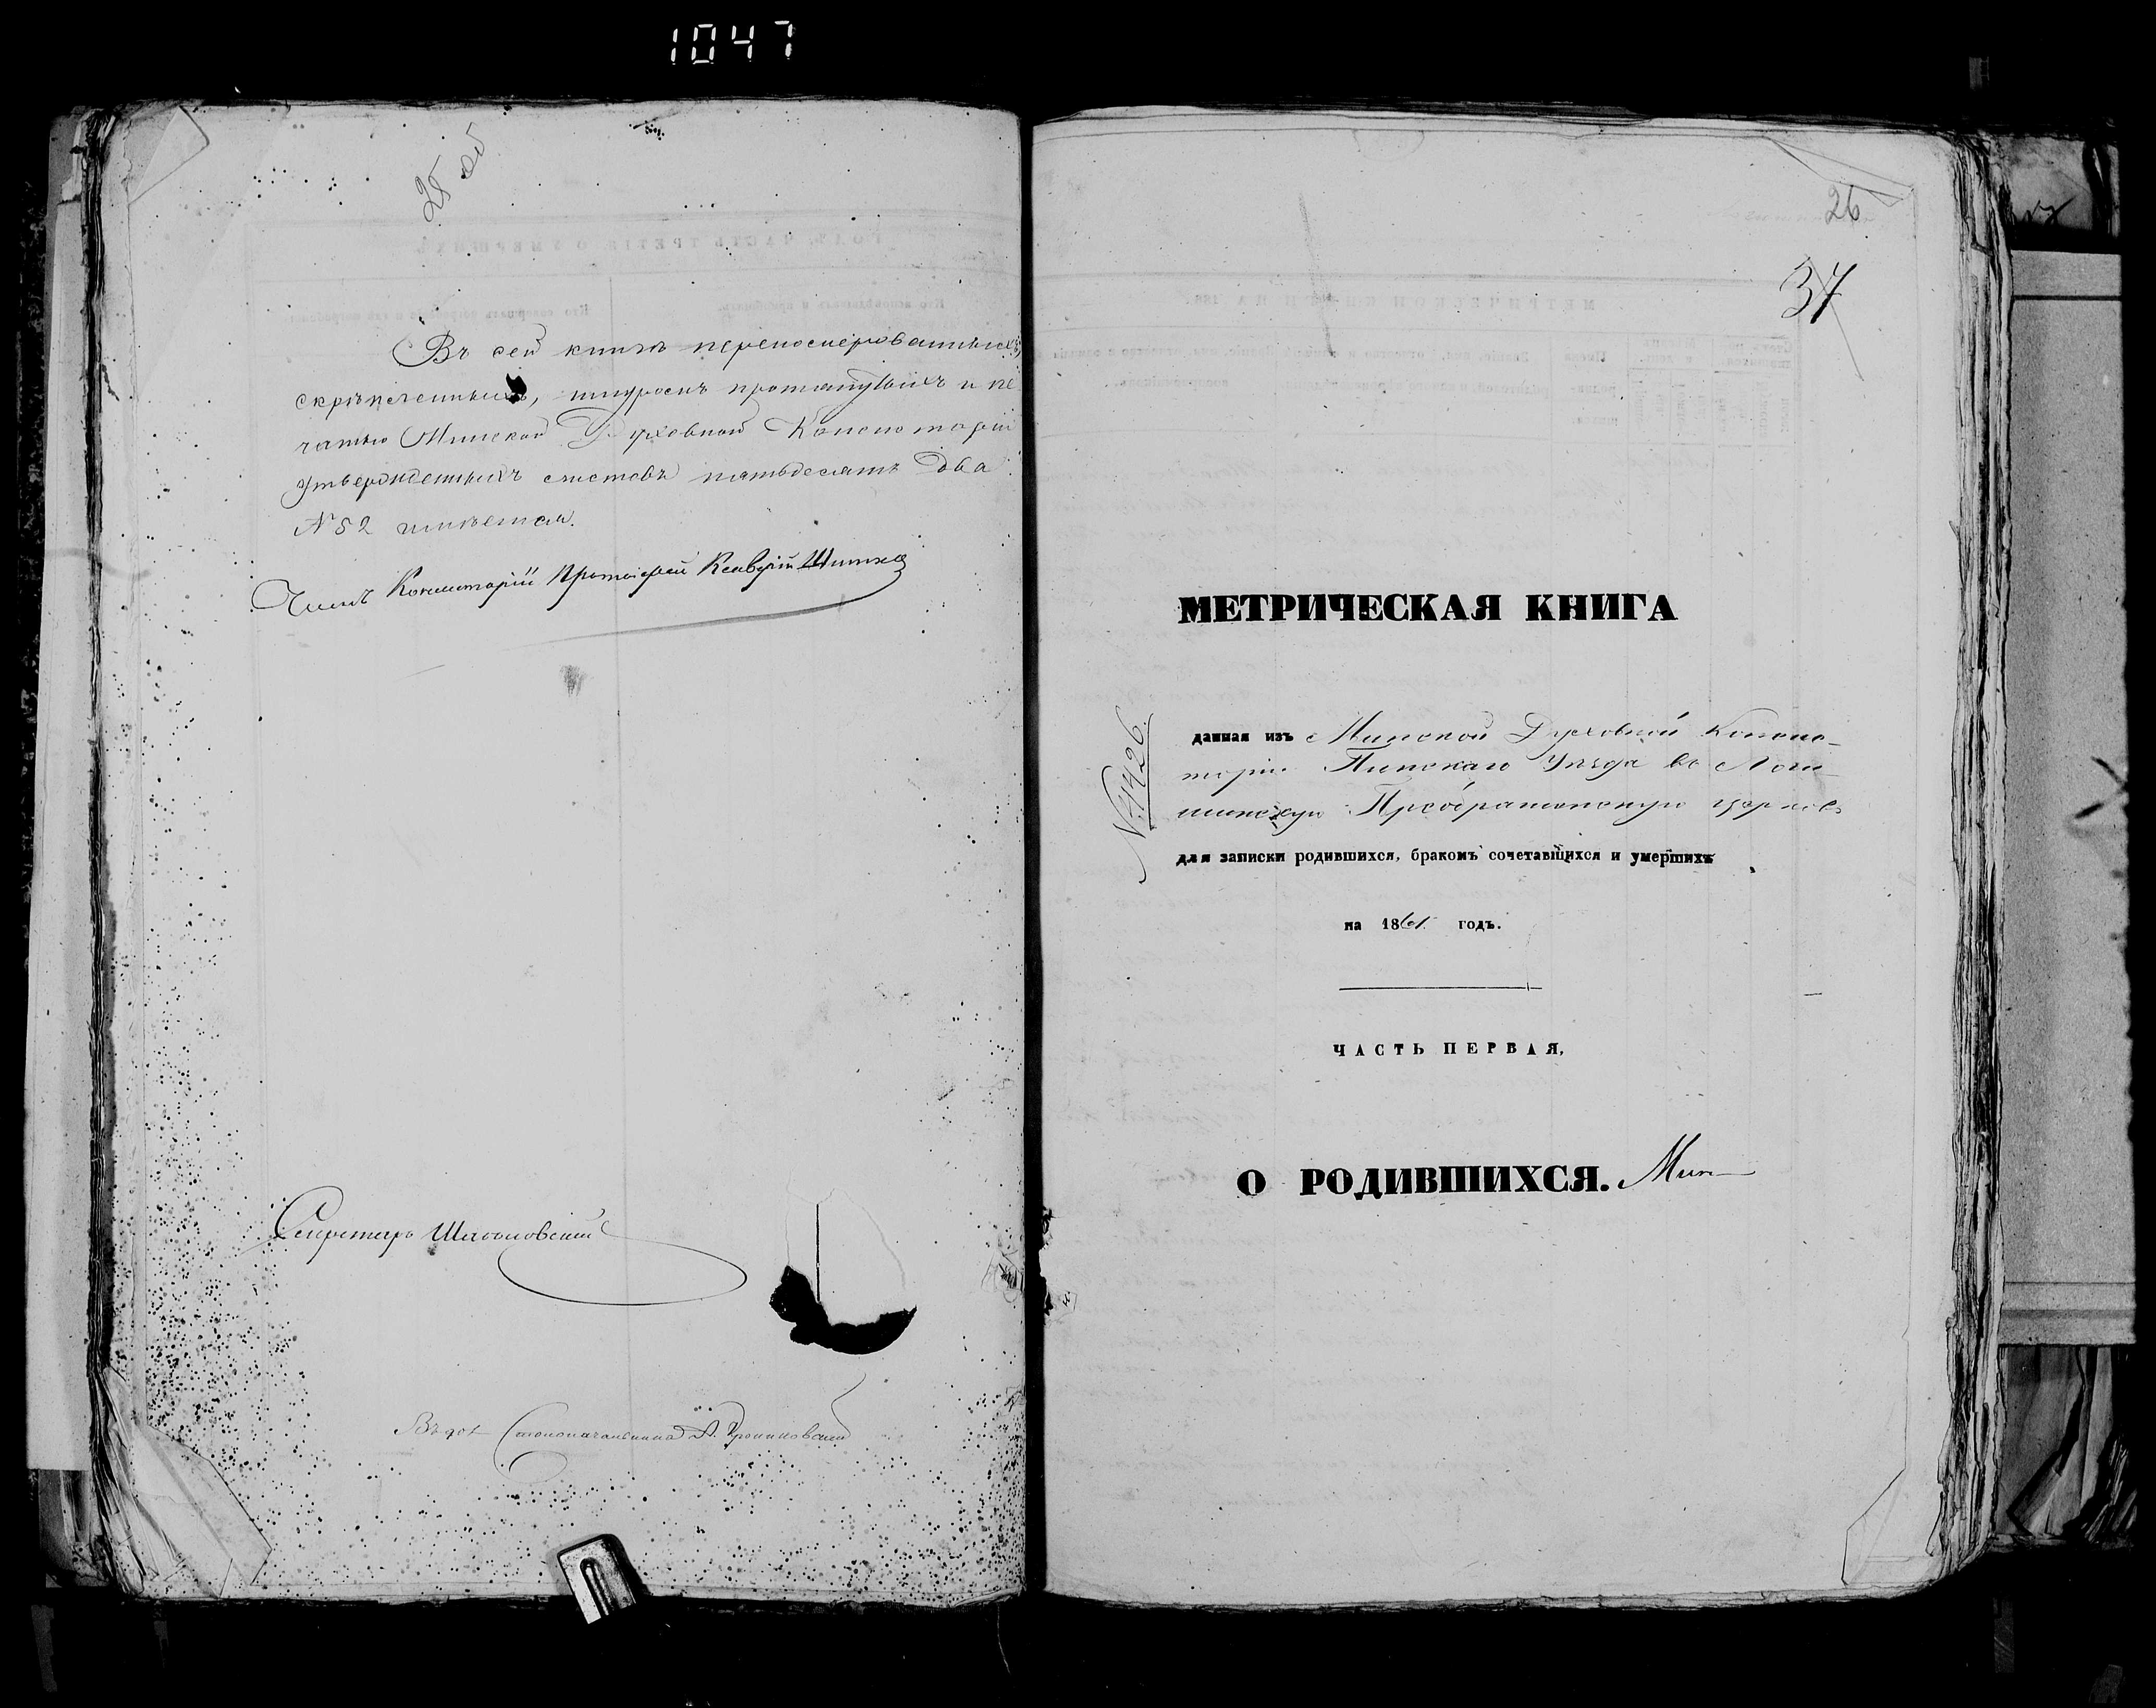 1047
25 об
Въ сей книгѣ перенумерованныхъ,
скрѣпленныхъ, шнуромъ протянутыхъ и пе
чатью Минской Духовной Консисторіи
утвержденныхъ листовъ пятьдесятъ два
№ 52 имѣется.
Членъ Консисторіи Протоіерей
Секретарь
Столоначальника
26
37
МЕТРИЧЕСКАЯ КНИГА
№ 1426
данная изъ Минской Духовной Консис-
торіи Пинскаго Уѣзда въ Логи-
шинскую Преображенскую церковь
для записки родившихся, бракомъ сочетавшихся и умершихъ
на 1861 годъ.
ЧАСТЬ ПЕРВАЯ,
О РОДИВШИХСЯ.